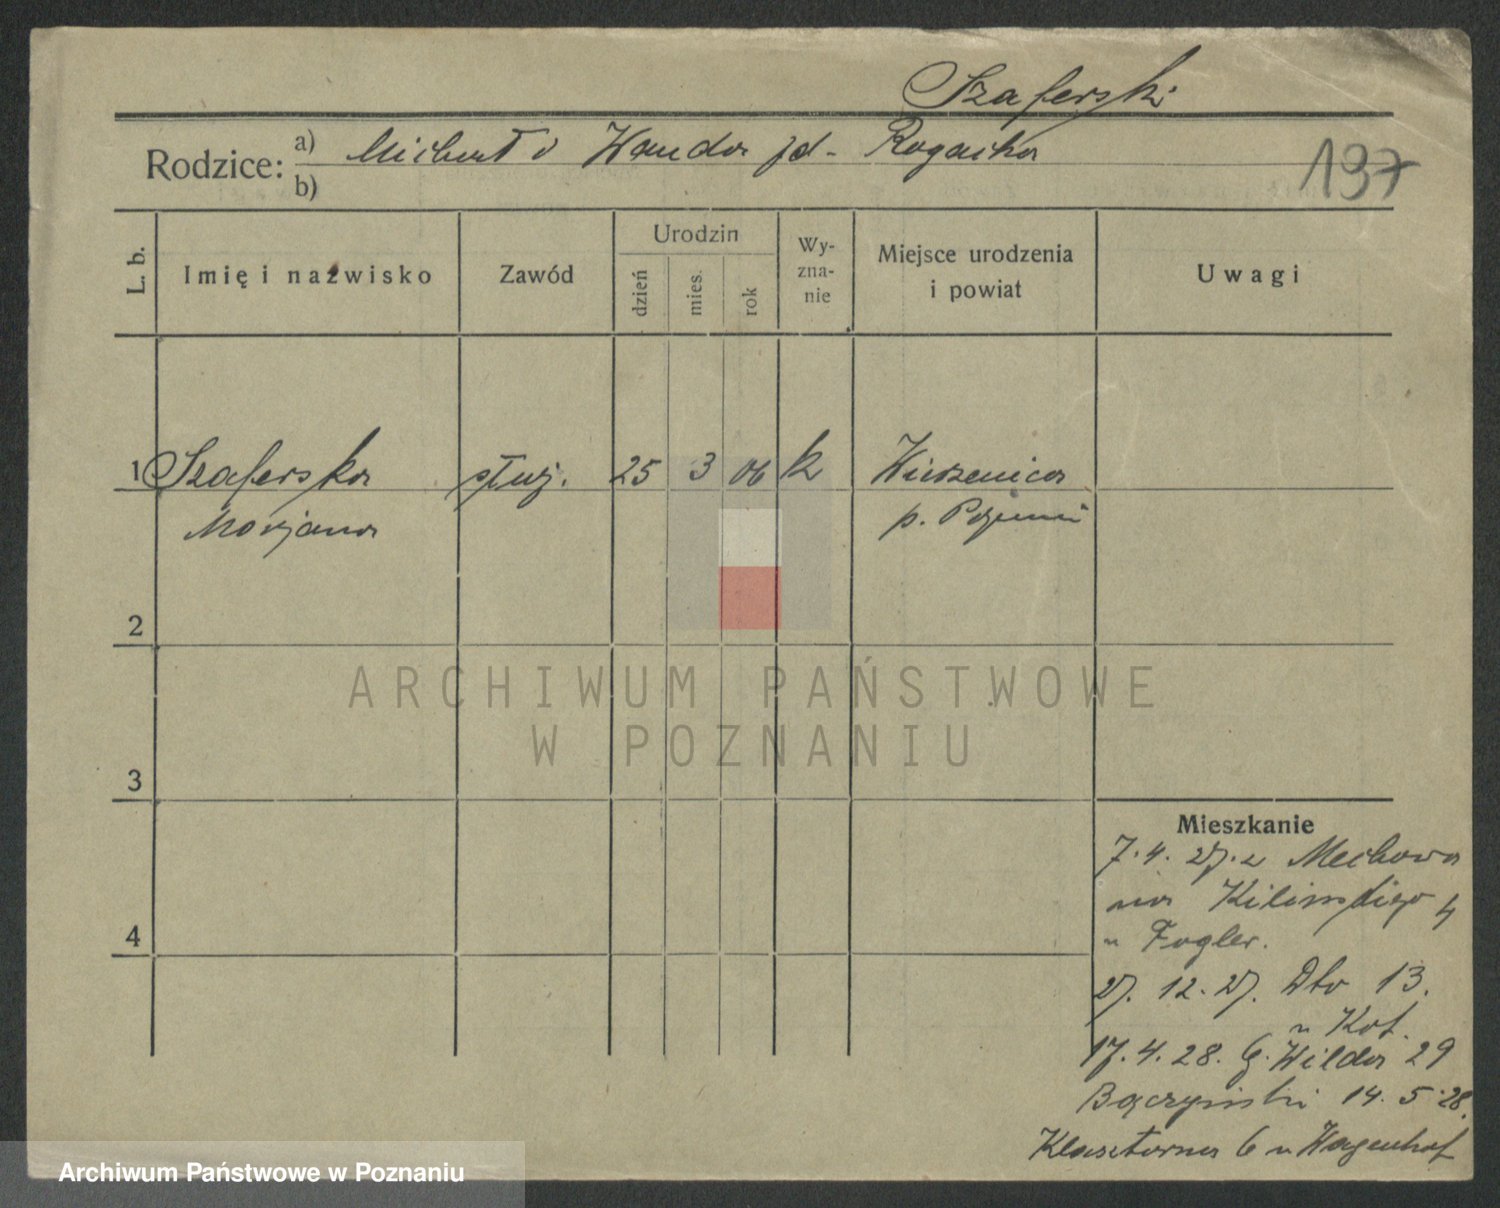 Szaferski
Rodzice: a) Michał i Wanda zd. Rogacka
b)
197
L. b. Imię i nazwisko Zawód Urodzin dzień mies. rok Wy-zna-nie Miejsce urodzenia i powiat Uwagi
1 Szaferska służ. 25 3 06 k Wierzenica
Marjana p. Poznań
2
ARCHIWUM PAŃSTWOWE
W POZNANIU
3
Mieszkanie
7.4.27. z Mechowa
na Kilińskiego 4
4
u Fogler.
27.12.27. Dto 13.
u Kof.
17.4.28. G. Wilda 29
14.5.28.
Klasztorna 6 u Wagenhof
Archiwum Państwowe w Poznaniu